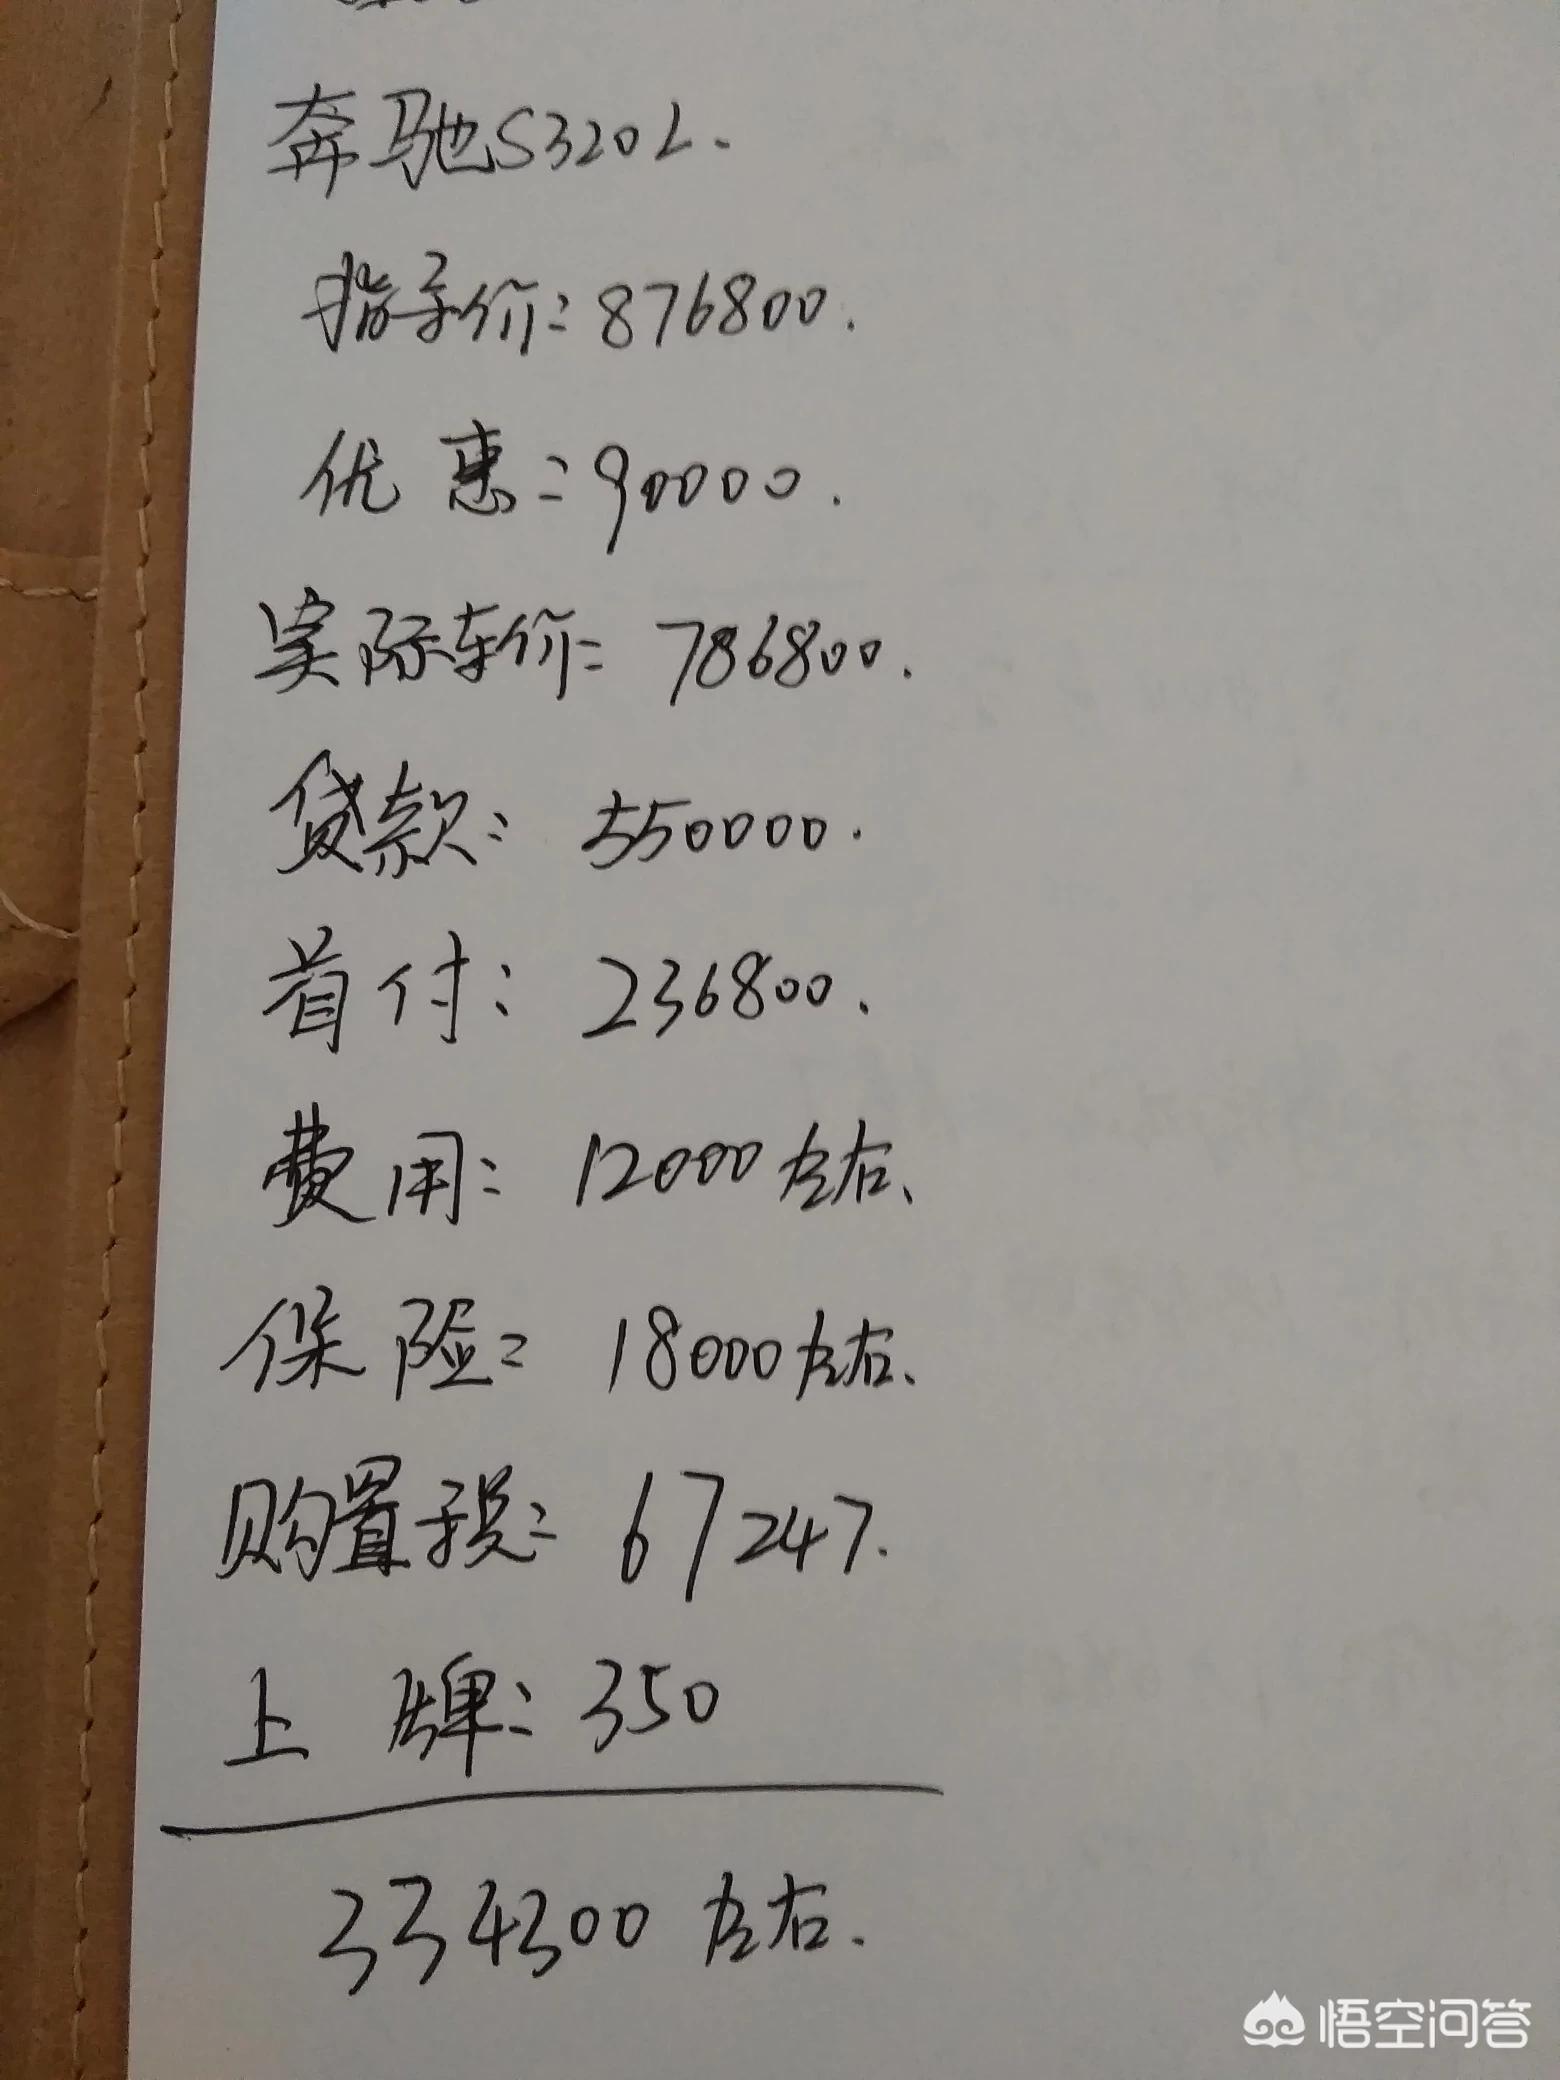 奔驰S320L.
指导价:876800.
优惠:90000.
实际车价:786800.
贷款:550000.
首付:236800.
费用:12000左右、
保险:18000左右、
购置税:67247.
上牌:350
334300左右.
悟空问答